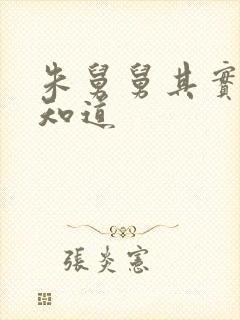 朱舅舅其實
知道
張炎憲